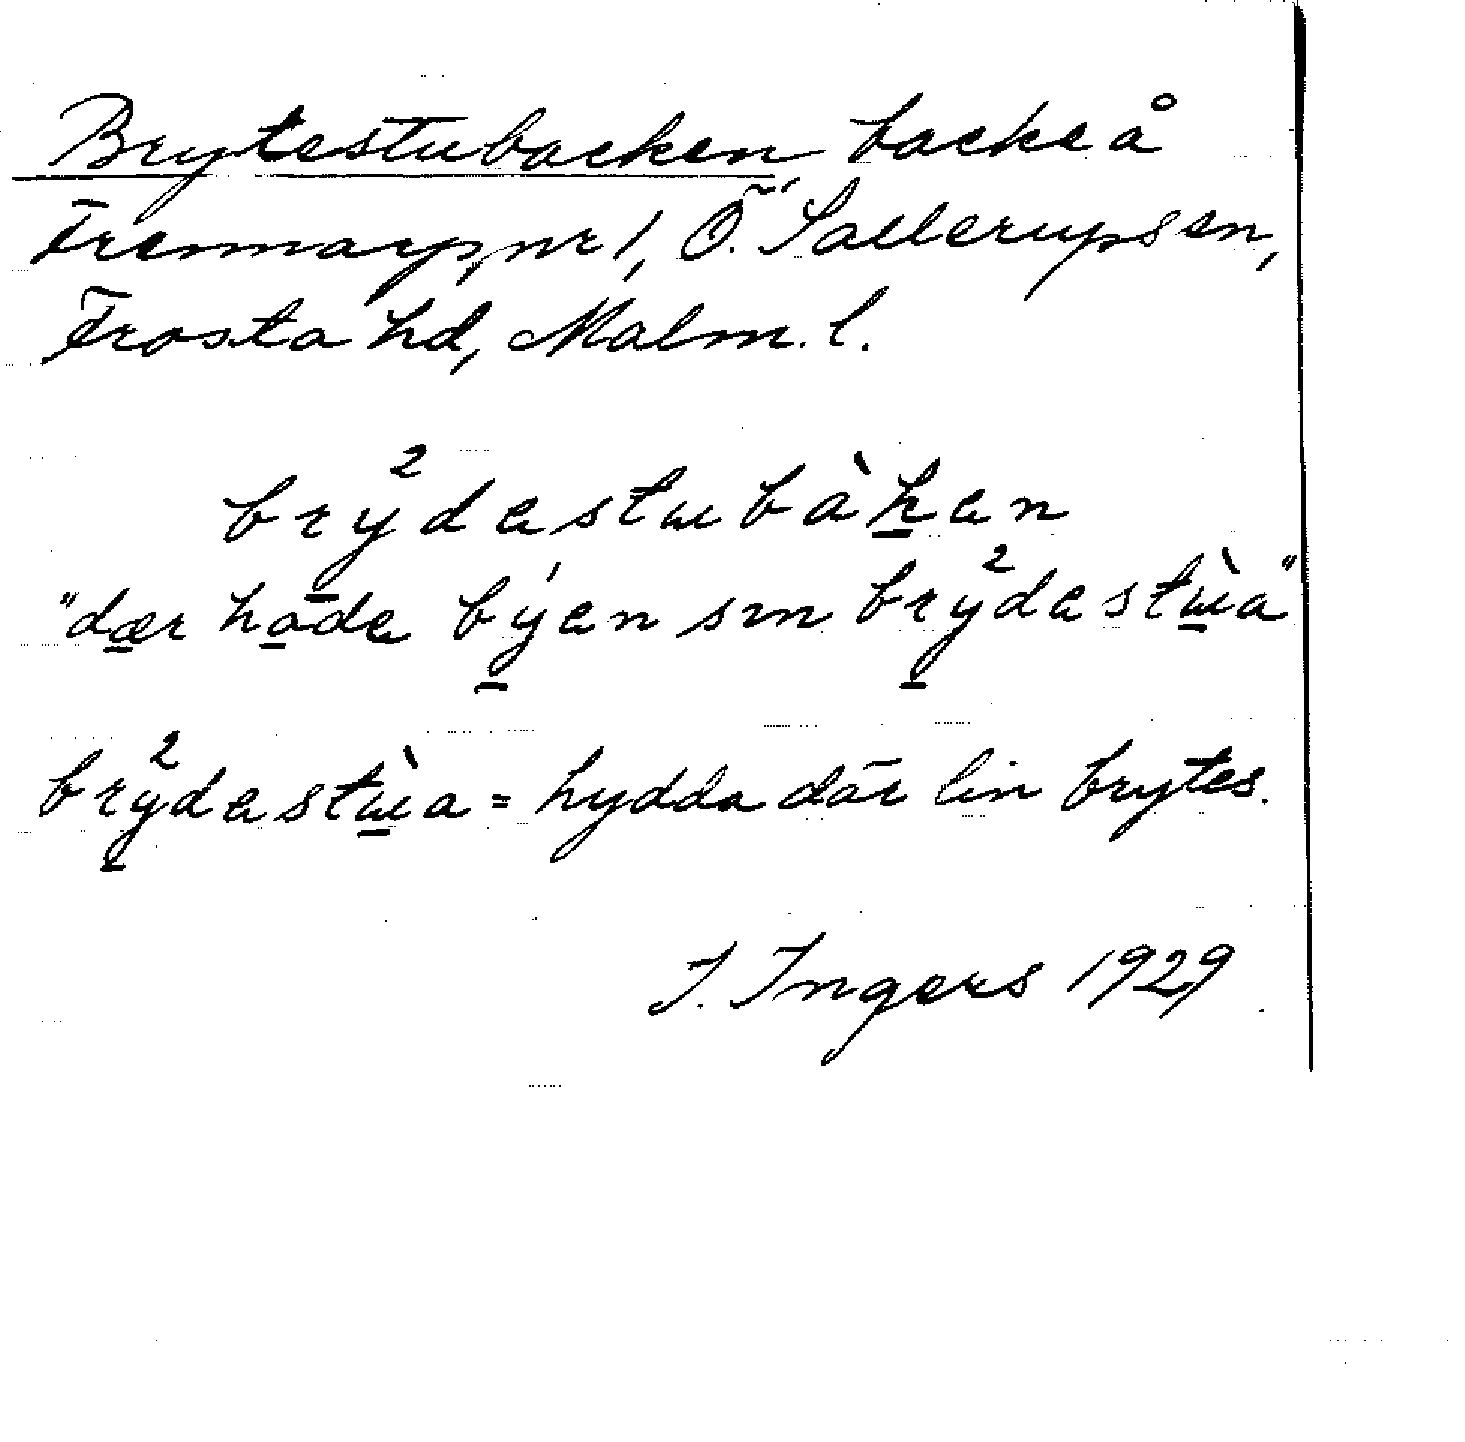 Brytestubacken backe å
Trennarp, nr 1, Ö. Sallerup sn,
Frosta hd, Malm. l.
brý²destɯbàken
"dær hade býen sin brý²destɯ̀a"
brý²destɯ̀a = hydda där lin brytes.
I. Ingers 1929